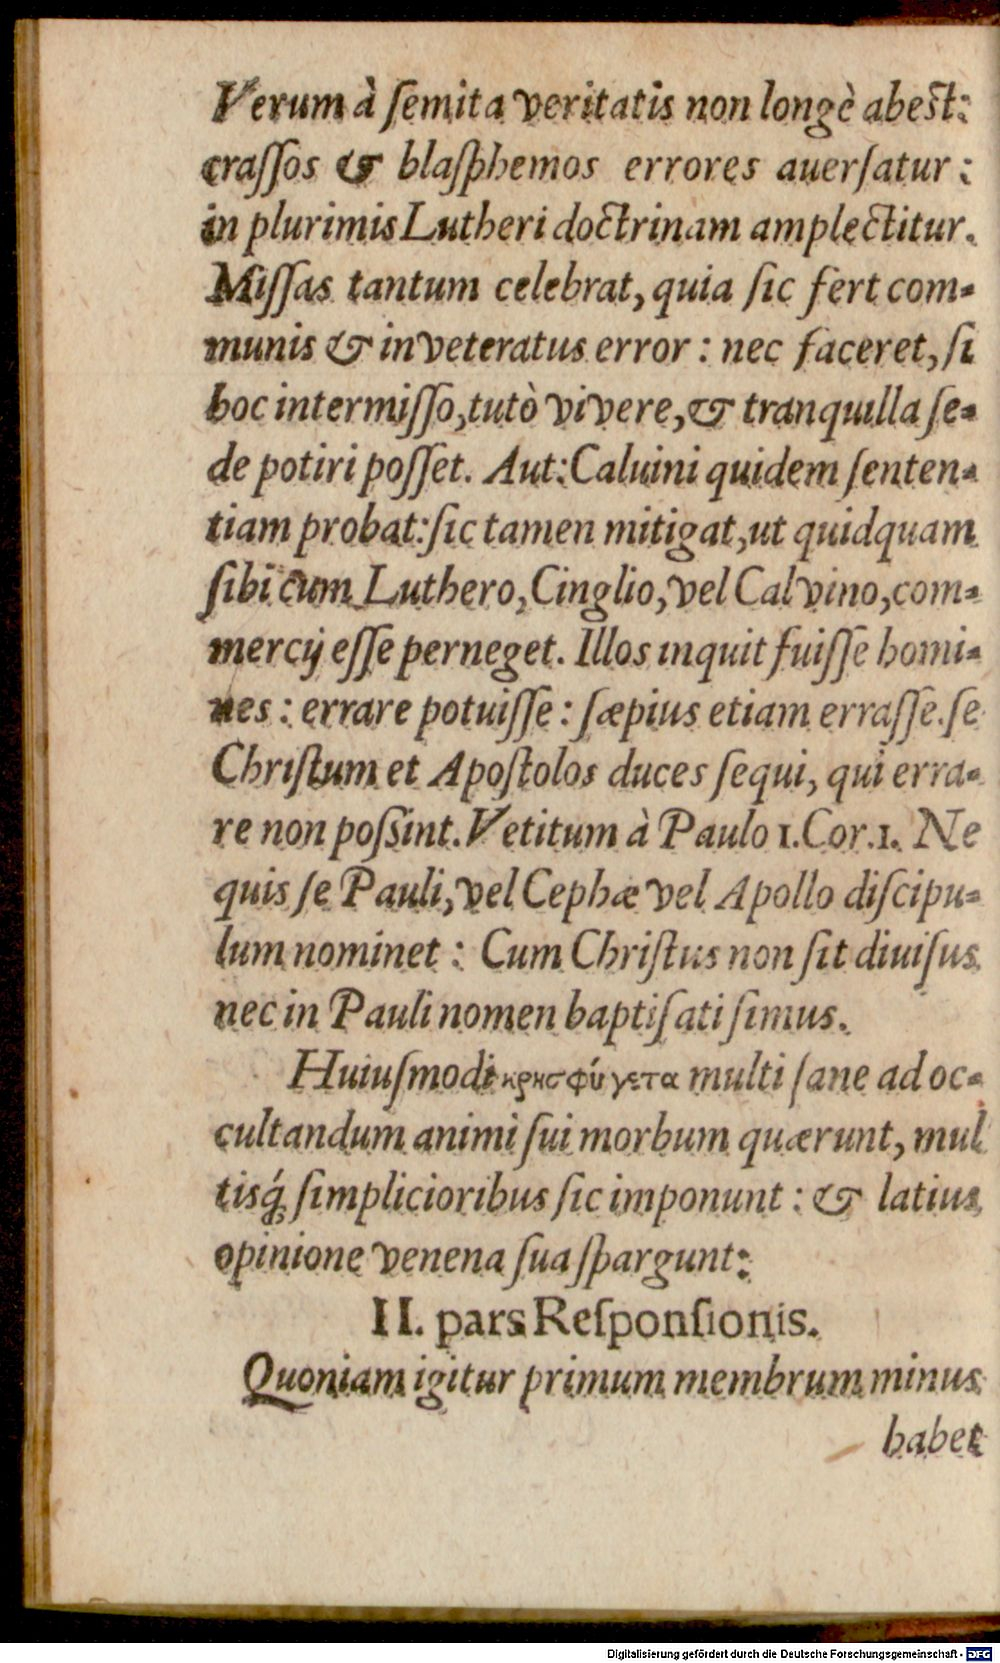 Verum à ſemita veritatis non longè abest:
craſſos & blaſphemos errores auerſatur:
in plurimis Lutheri doctrinam amplectitur.
Miſſas tantum celebrat, quia ſic fert com-
munis & inveteratus error: nec faceret, ſi
hoc intermiſſo, tutò vivere, & tranquilla ſe-
de potiri poſſet. Aut: Caluini quidem ſenten-
tiam probat: ſic tamen mitigat, ut quidquam
ſibi cum Luthero, Cinglio, vel Calvino, com-
mercij eſſe perneget. Illos inquit fuiſſe homi-
nes: errare potuiſſe: ſæpius etiam erraſſe. ſe
Chriſtum et Apoſtolos duces ſequi, qui erra-
re non poſſint. Vetitum à Paulo 1. Cor. 1. Ne
quis ſe Pauli, vel Cephæ vel Apollo diſcipu-
lum nominet: Cum Chriſtus non ſit diuiſus
nec in Pauli nomen baptiſati ſimus.
Huiuſmodi κρησφύγετα multi ſane ad oc-
cultandum animi ſui morbum quærunt, mul
tisq́ꝫ ſimplicioribus ſic imponunt: & latius
opinione venena ſua ſpargunt:
II. pars Reſponſionis.
Quoniam igitur primum membrum minus
habet
Digitalisierung gefördert durch die Deutsche Forschungsgemeinschaft - DFG